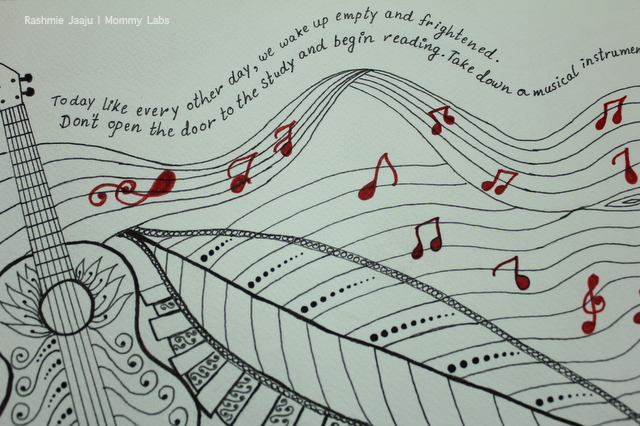 Rashmie Jaaju | Mommy Labs
Today like every other day, we wake up empty and frightened.
Don't open the door to the study and begin reading. Take down a musical instrument